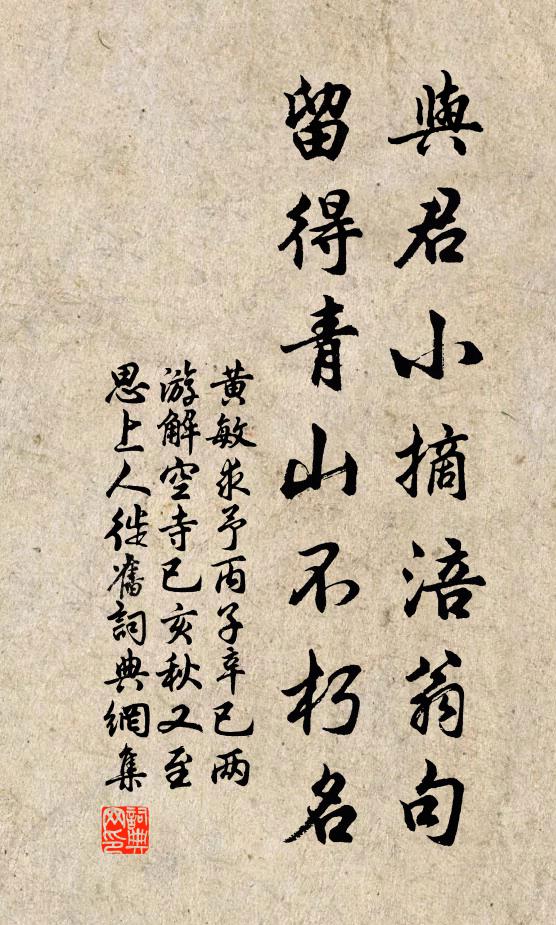 與君小摘涪翁句
留得青山不朽名
黄敏求予丙子辛巳两
游解空寺已亥秋又至
思上人徙舊詞典網集
詞典
网印